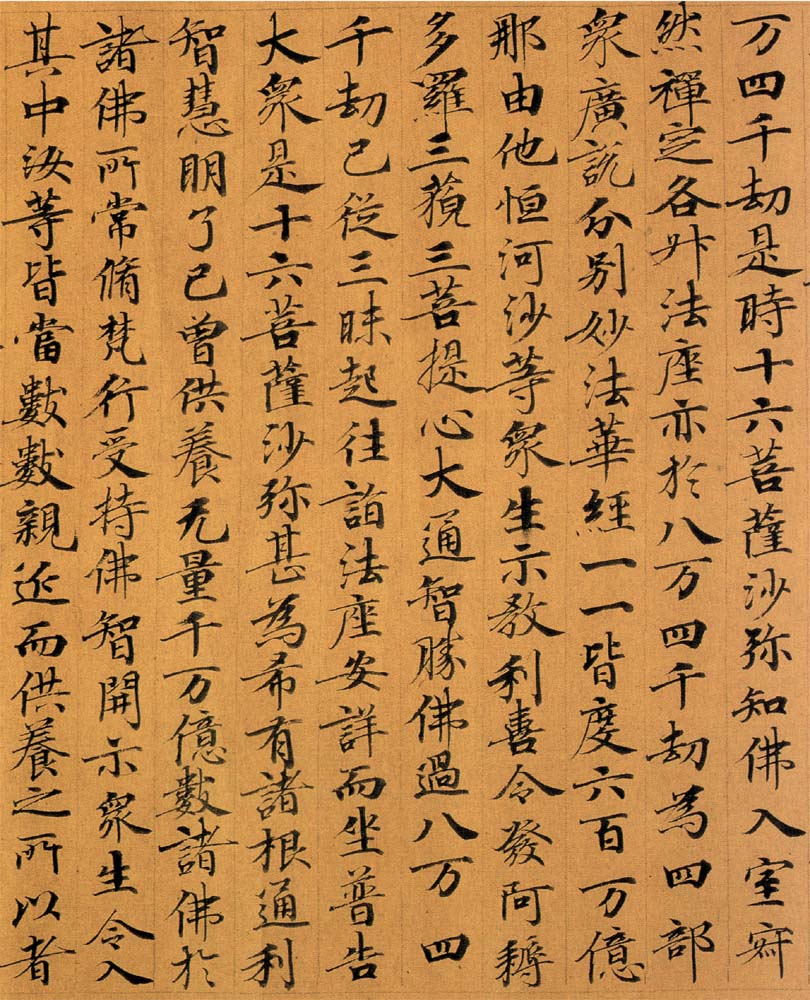 万四千劫是時十六菩薩沙弥知佛入室寂
然禪定各昇法座亦於八万四千劫為四部
衆廣說分別妙法華經一一皆度六百万億
那由他恒河沙等衆生示教利喜令發阿耨
多羅三藐三菩提心大通智勝佛過八万四
千劫已從三昧起往詣法座安詳而坐普告
大衆是十六菩薩沙弥甚為希有諸根通利
智慧明了已曾供養无量千万億數諸佛於
諸佛所常脩梵行受持佛智開示衆生令入
其中汝等皆當數數親近而供養之所以者